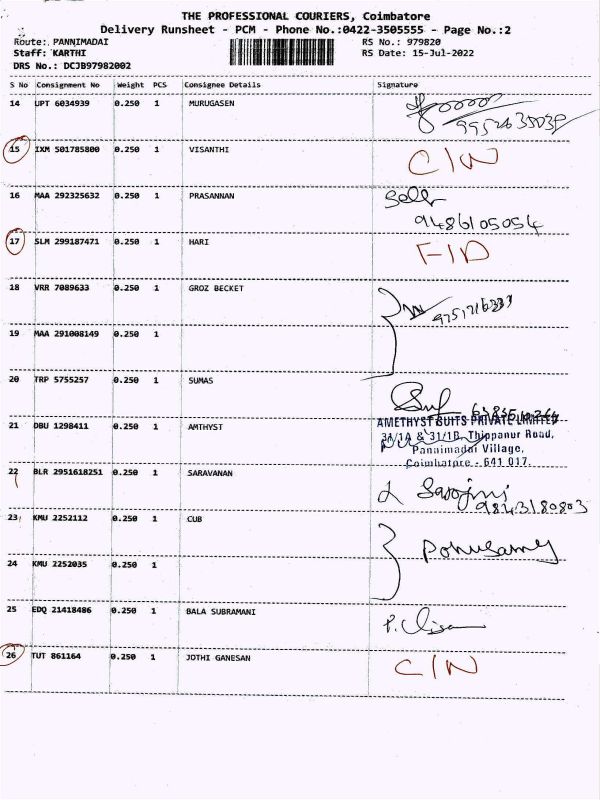 THE PROFESSIONAL COURIERS, Coimbatore
Delivery Runsheet - PCM - Phone No.:0422-3505555 - Page No.:2
Route: PANNIMADAI
RS No.: 979820
Staff: KARTHI
RS Date: 15-Jul-2022
DRS No.: DCJB97982002
S No Consignment No Weight PCS Consignee Details Signature
14 UPT 6034939 0.250 1 MURUGASEN
15 IXM 501785800 0.250 1 VISANTHI C/N
16 MAA 292325632 0.250 1 PRASANNAN
9486105054
17 SLM 299187471 0.250 1 HARI
18 VRR 7089633 0.250 1 GROZ BECKET
19 MAA 291008149 0.250 1
20 TRP 5755257 0.250 1 SUMAS
21 DBU 1298411 0.250 1 AMTHYST
AMETHYST SUITS PRIVATE LIMITED
31/1A & 31/1B, Thippanur Road,
Pannimadai Village,
Coimbatore - 641 017.
22 BLR 2951618251 0.250 1 SARAVANAN
Sarojini
9843180803
23 KMU 2252112 0.250 1 CUB
Ponusamy
24 KMU 2252035 0.250 1
25 EDQ 21418486 0.250 1 BALA SUBRAMANI
26 TUT 861164 0.250 1 JOTHI GANESAN C/N